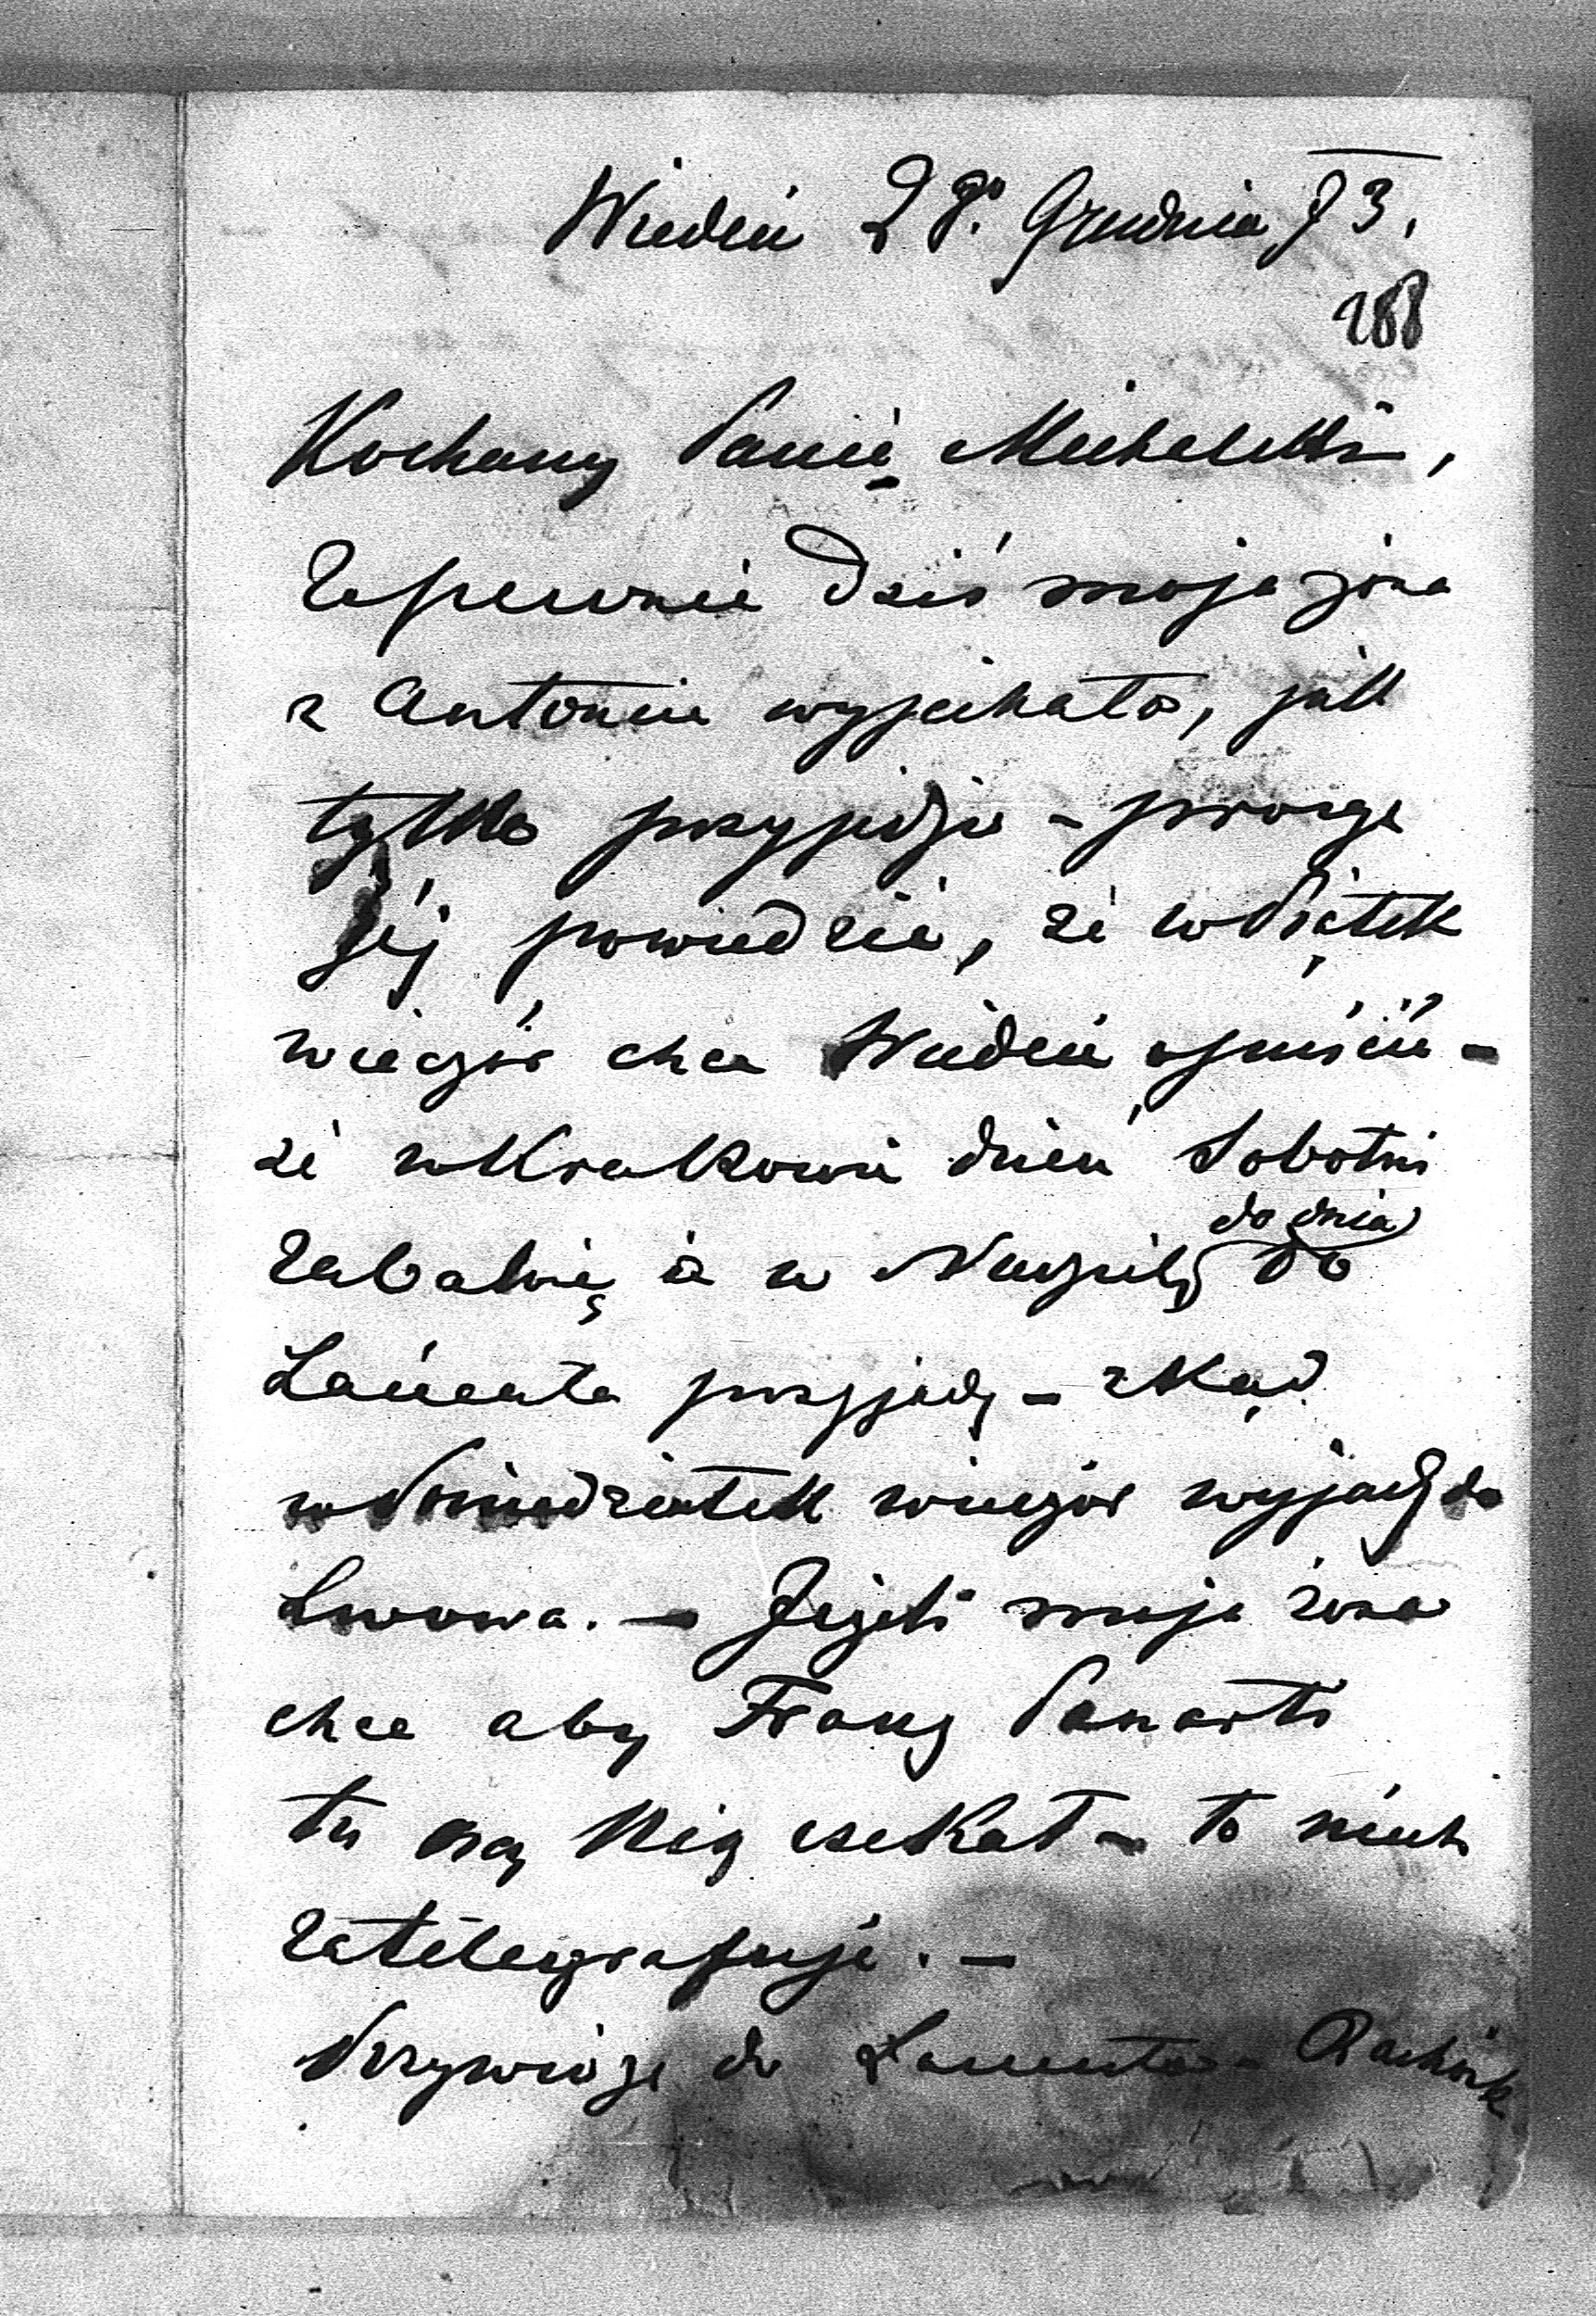 Wiedeń 2go. Grudnia 73.
288
Kochany Panie Micheletti,
Zapewnie dziś moja żona
z Antonin wyjechała, jak
tylko przyjedzie - proszę
jéj powiedzieć, że w Piątek
wieczór chcę Wiedeń opuścić -
że w Krakowie dzień Sobotni
zabawię a w Niedzielę do dnia do
Łańcuta przyjadę - zkąd
w Poniedziałek wieczór wyjadę do
Lwowa. - Jeżeli moja żona
chce aby Franz
tu na Nią czekał - to niech
zatelegrafuje. -
Przywiozę do Łańcuta